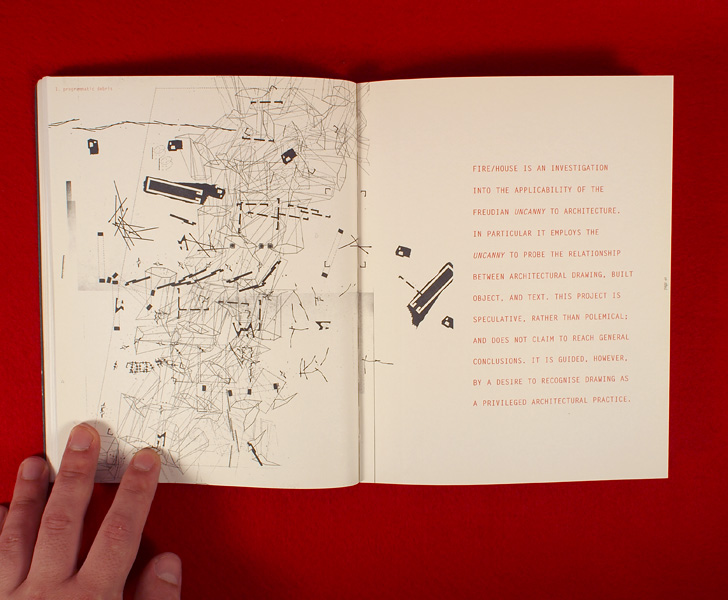 FIRE/HOUSE IS AN INVESTIGATION
INTO THE APPLICABILITY OF THE
FREUDIAN UNCANNY TO ARCHITECTURE.
IN PARTICULAR IT EMPLOYS THE
UNCANNY TO PROBE THE RELATIONSHIP
BETWEEN ARCHITECTURAL DRAWING, BUILT
OBJECT, AND TEXT. THIS PROJECT IS
SPECULATIVE, RATHER THAN POLEMICAL;
AND DOES NOT CLAIM TO REACH GENERAL
CONCLUSIONS. IT IS GUIDED, HOWEVER,
BY A DESIRE TO RECOGNISE DRAWING AS
A PRIVILEGED ARCHITECTURAL PRACTICE.